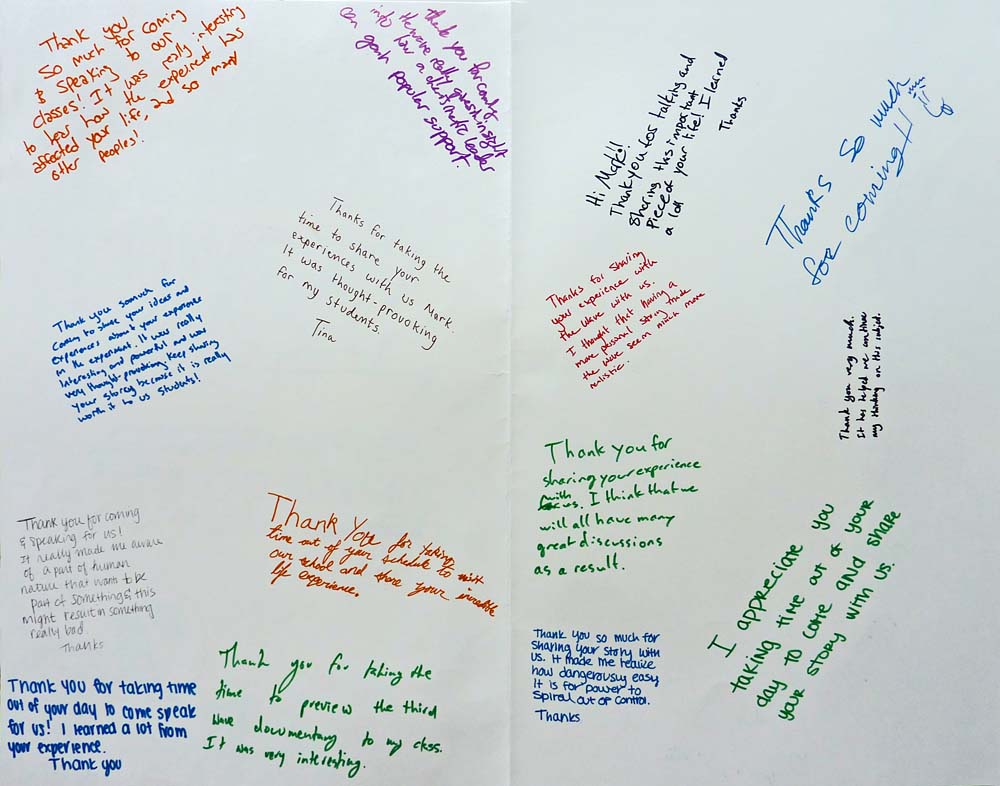 Thank you
so much for coming
& speaking to our
classes! It was really interesting
to hear how the experiment has
affected your life, and so many
other peoples!
thank you for coming
He gave really great insight
into how a charismatic leader
can gain popular support.
Thanks for taking the
time to share your
experiences with us Mark.
It was thought-provoking
for my students.
Tina
Thank you soomuch for
coming to share your ideas and
experiences about your experience
in the experiment. It was really
interesting and powerful and was
very thought-provoking. Keep sharing
your story because it is really
worth it to us students!
Thank you for coming
& speaking for us!
It really made me aware
of a part of human
nature that wants to be
part of something & this
might result in something
really bad.
Thanks
Thank You for taking
time out of your schedule to visit
our school and share your incredible
life experience.
Thank you for taking time
out of your day to come speak
for us! I learned a lot from
your experience.
Thank you
Thank you for taking the
time to preview the third
wave documentary to my class.
It was very interesting.
Hi Mark!!
Thank you for talking and
sharing this important
piece of your life! I learned
a lot
Thanks
Thanks so much
for coming!!
Thanks for sharing
your experience with
the wave with us.
I thought that having a
more personal story made
the wave seem much more
realistic.
Thank you very much.
It has helped me continue
my thinking on this subject.
Thank you for
sharing your experience
with us. I think that we
will all have many
great discussions
as a result.
I appreciate you
taking time out of your
day to come and share
your story with us.
Thank you so much for
sharing your story with
us. It made me realize
how dangerously easy
it is for power to
spiral out of control.
Thanks